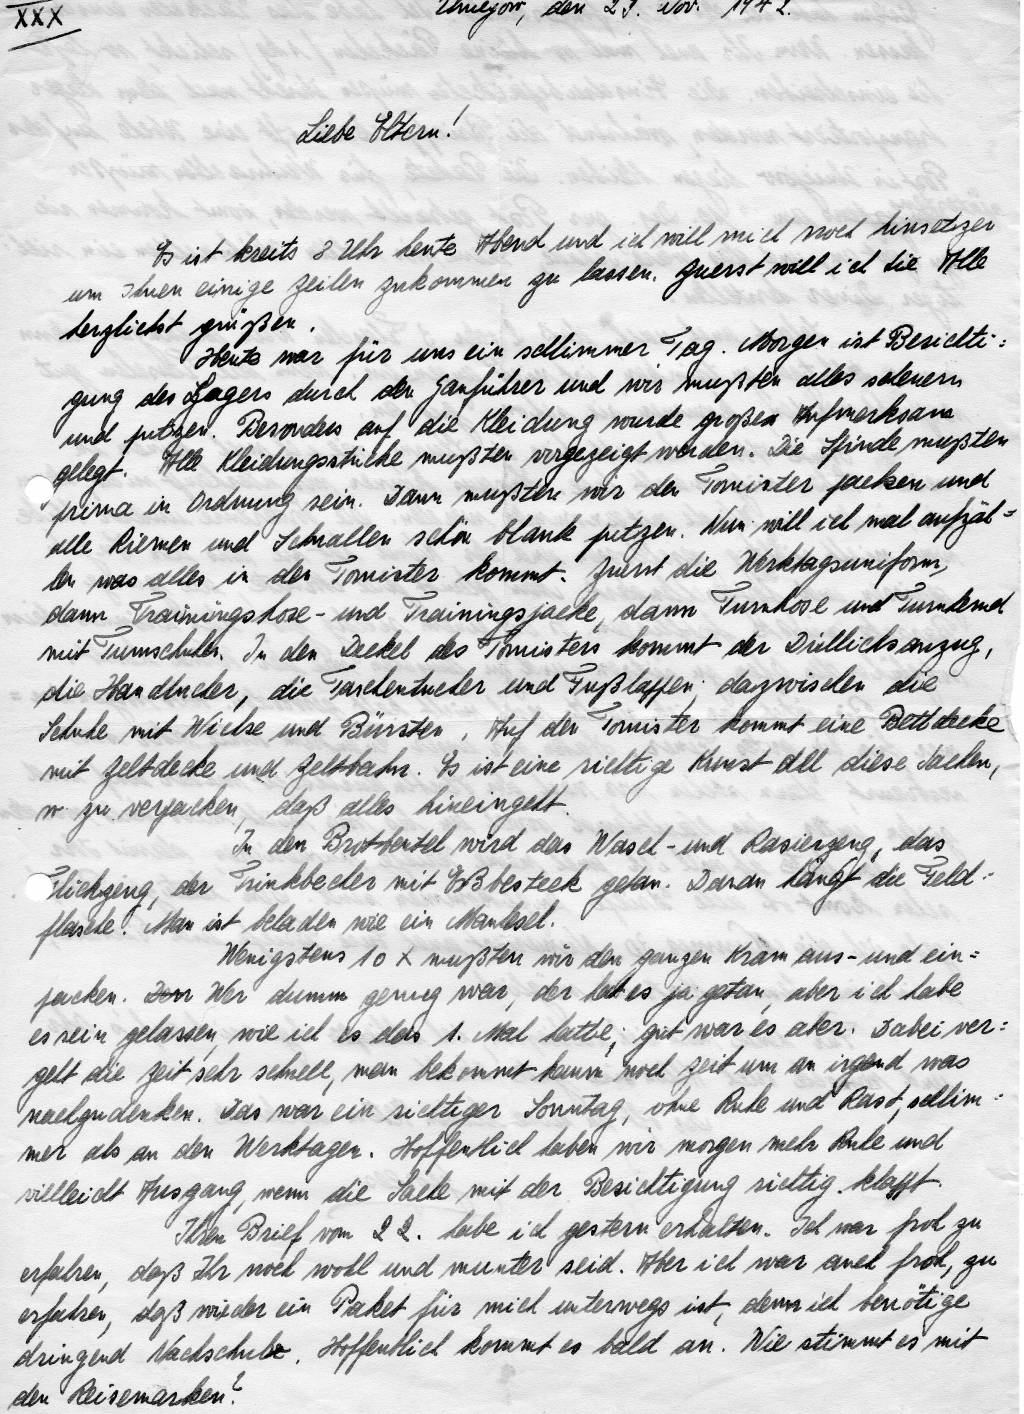 XXX
den 29. Nov. 1942.
Liebe Eltern!
Es ist breits 8 Uhr heute Abend und ich will mich noch hinsetzen
um Ihnen einige Zeilen zukommen zu lassen. Zuerst will ich Sie Alle
herzlichst grüßen.
Heute war für uns ein schlimmer Tag. Morgen ist Besichti=
gung des Lagers durch den Gauführer und wir mußten alles scheuern
und putzen. Besonders auf die Kleidung wurde großen Aufmerksam
gelegt. Alle Kleidungsstücke mußten vorgezeigt werden. Die Spinde mußten
prima in Ordnung sein. Dann mußten wir den Tornister packen und
alle Riemen und Schnallen schön blank putzen. Nun will ich mal aufzäh=
len was alles in den Tornister kommt. Zuerst die Werktagsuniform,
dann Trainingshose- und Trainingsjacke, dann Turnhose und Turnhemd
mit Turnschuhen. In den Deckel des Tornisters kommt der Drillichsanzug,
die Handtücher, die Taschentücher und Fußlappen, dazwischen die
Schuhe mit Wichse und Bürsten. Auf den Tornister kommt eine Bettdecke
mit Zeltdecke und Zeltbahn. Es ist eine richtige Kunst all diese Sachen,
so zu verpacken, daß alles hineingeht.
In den Brotbeutel wird das Wasch- und Rasierzeug, das
Flickzeug, der Trinkbecher mit Eßbesteck getan. Daran hängt die Feld=
flasche. Man ist beladen wie ein Maulesel.
Wenigstens 10 X mußten wir den ganzen Kram aus- und ein=
packen. Wer dumm genug war, der hat es ja getan, aber ich habe
es sein gelassen, wie ich es das 1. Mal hatte, gut war es aber. Dabei ver=
geht die Zeit sehr schnell, man bekommt kaum noch Zeit um an irgend was
nachzudenken. Das war ein richtiger Sonntag, ohne Ruhe und Rast, schlim=
mer als an den Werktagen. Hoffentlich haben wir morgen mehr Ruhe und
villeicht Ausgang, wenn die Sache mit der Besichtigung richtig klappt.
Ihren Brief vom 22. habe ich gestern erhalten. Ich war froh zu
erfahren, daß Ihr noch wohl und munter seid. Aber ich war auch froh, zu
erfahren, daß wieder ein Paket für mich unterwegs ist, denn ich benötige
dringend Nachschub. Hoffentlich kommt es bald an. Wie stimmt es mit
den Reisemarken?